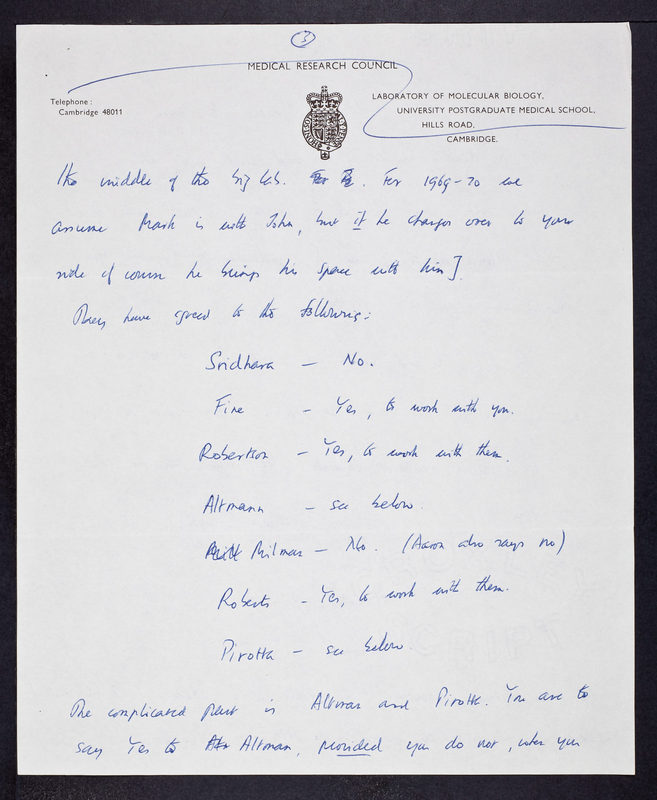 3
MEDICAL RESEARCH COUNCIL
Telephone:
Cambridge 48011
LABORATORY OF MOLECULAR BIOLOGY,
UNIVERSITY POSTGRADUATE MEDICAL SCHOOL,
HILLS ROAD,
CAMBRIDGE.
the middle of the big lab. For 1969-70 we
assume Mark is with John, but if he changes over to your
side of course he brings his space with him].
They have agreed to the following:
Sridhara — No.
Fine — Yes, to work with you.
Robertson — Yes, to work with them.
Altmann — see below.
Milman — No. (Aaron also says no)
Roberts — Yes, to work with them.
Pirotta — see below.
The complicated part is Altman and Pirotta. You are to
say Yes to Altman, provided you do not, when you